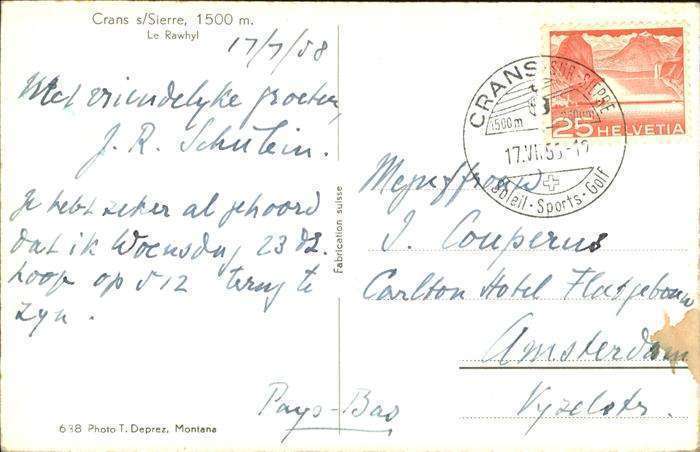 Crans s/Sierre, 1500 m.
Le Rawhyl
17/7/58
Met vriendelyke groeten,
J. R. Schulein.
Je hebt zeker al gehoord
dat ik Woensdag 23 dz.
hoop op 512 terug te
zyn.
Pays-Bas
638 Photo T. Deprez, Montana
Fabrication suisse
CRANS SUR SIERRE
1500m
17.VII.58-12
Soleil · Sports · Golf
25 HELVETIA
Mejuffrouw
J. Couperus
Carlton Hotel Flatgebouw
Amsterdam
Vyzelstr.